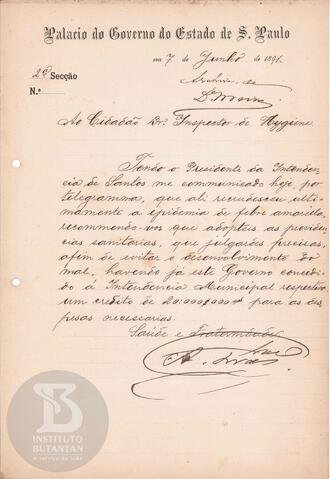 Palacio do Governo do Estado de S. Paulo
em 7 de Junho de 1891.
2ª Secção
N.º
Archive-se
Ao Cidadão Dr. Inspector de Hygiene.
Tendo o Presidente da Intenden-
cia de Santos me communicado hoje, por
telegramma, que ali recrudesceu ulti-
mamente a epidemia de febre amarella,
recommendo-vos que adopteis as providen-
cias sanitarias, que julgardes precisas,
afim de evitar o desenvolvimento do
mal, havendo já este Governo concedi-
do á Intendencia Municipal respectiva
um credito de 20:000$000 para as des-
pesas necessarias.
Saúde e Fraternidade
INSTITUTO
BUTANTAN
A serviço da vida